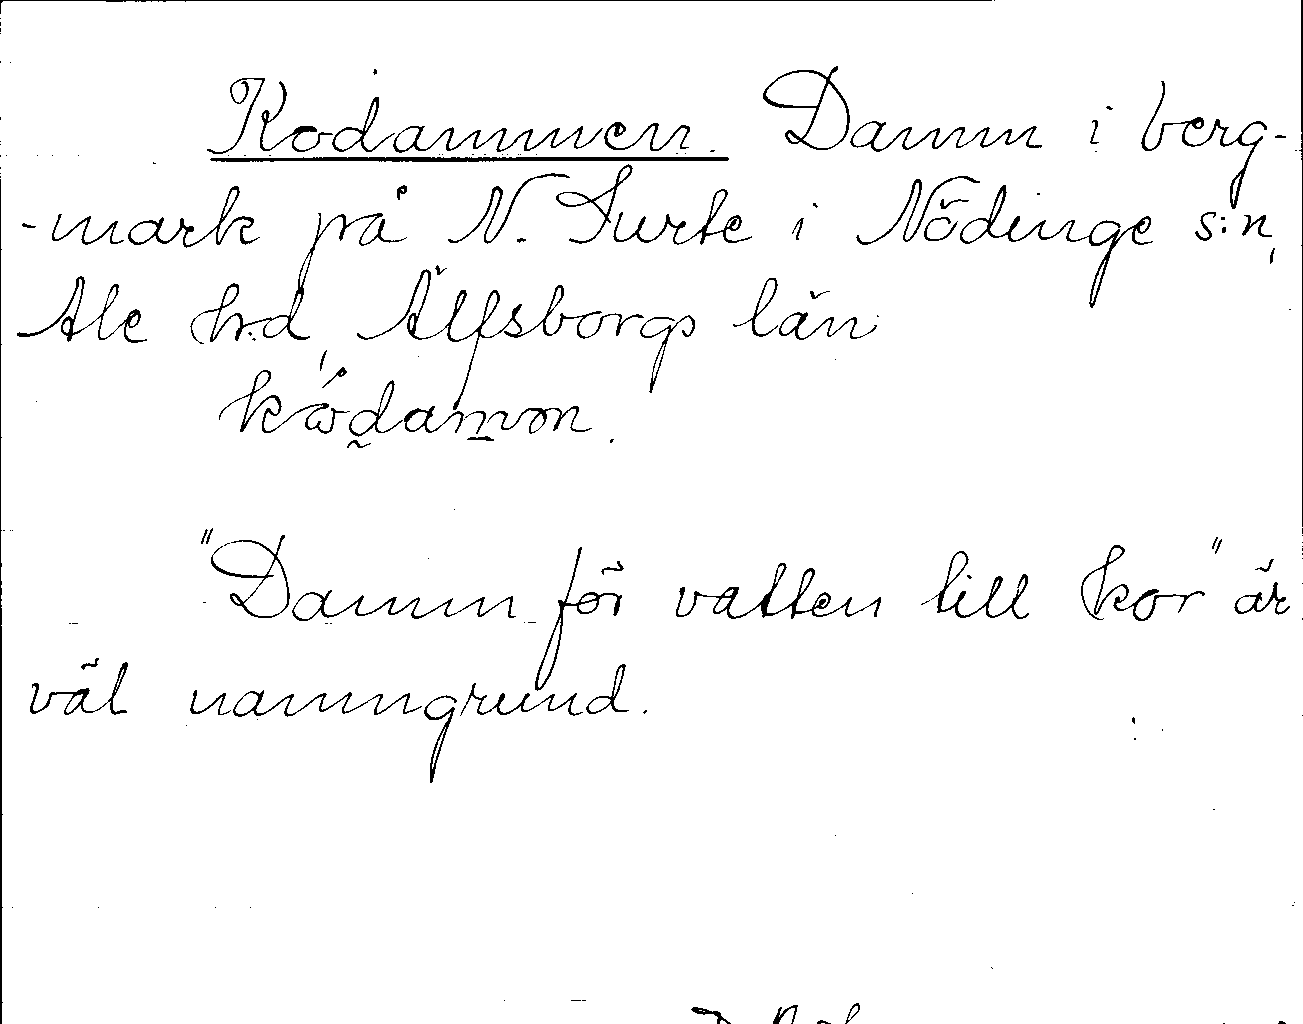 Kodammen. Damm i berg-
-mark på N. Surte i Nödinge s:n,
Ale hd, Älfsborgs län
"Damm för vatten till kor" är
väl namngrund.